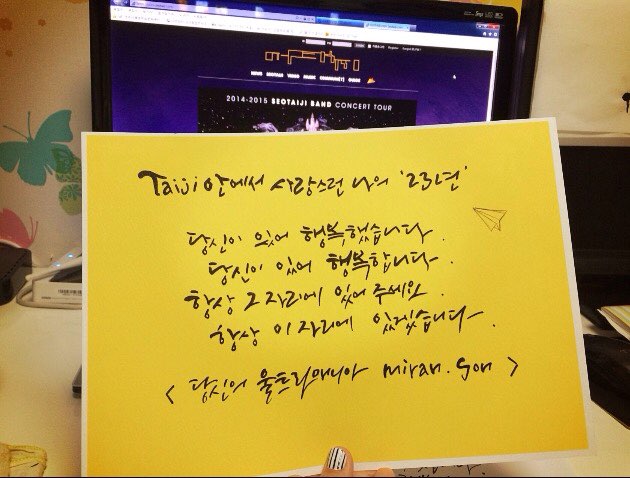 NEWS SEOTAIJI VIDEO MUSIC COMMUNITY GUIDE
2014-2015 SEOTAIJI BAND CONCERT TOUR
Taiji 안에서 사랑스런 나의 '23년'
당신이 있어 행복했습니다.
당신이 있어 행복합니다.
항상 그 자리에 있어 주세요.
항상 이 자리에 있겠습니다.
< 당신의 울트라매니아 miran. Son >